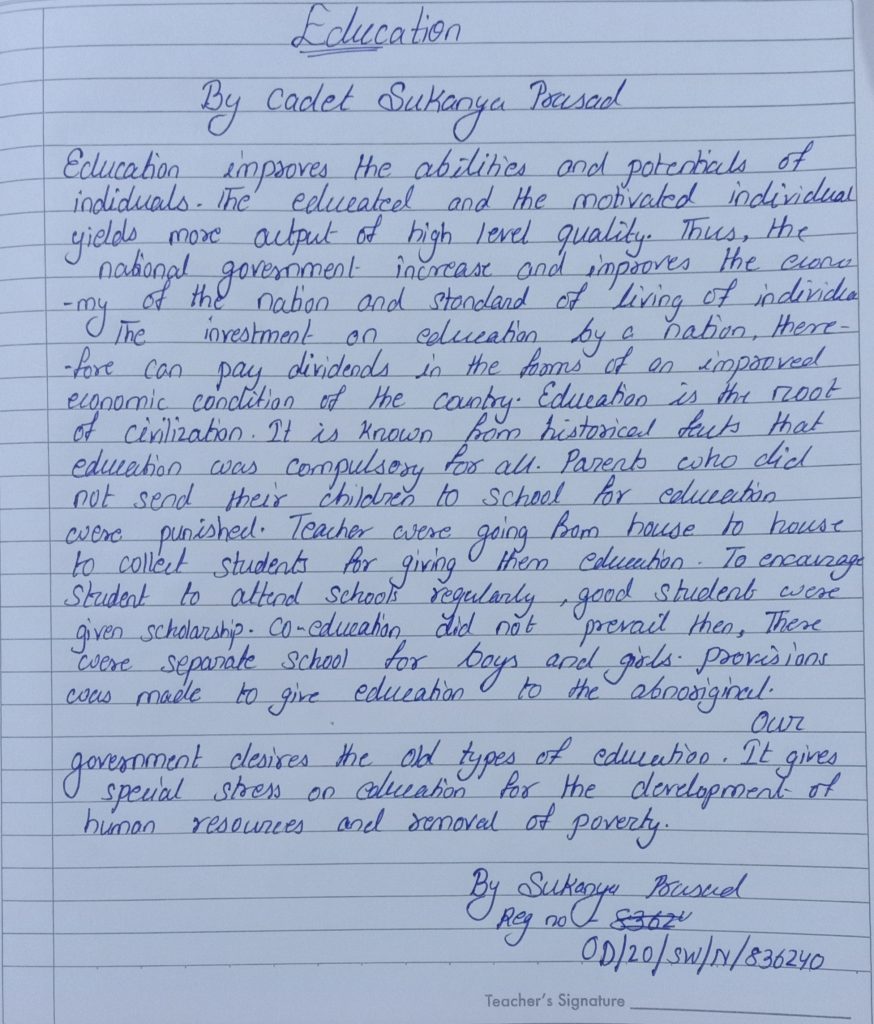 Education
By Cadet Sukanya Prasad
Education improves the abilities and potentials of
indiduals. The educated and the motivated individual
yields more output of high level quality. Thus, the
national government increase and improves the econo
-my of the nation and standard of living of individua
The investment on education by a nation, there-
-fore can pay dividends in the forms of an improved
economic condition of the country. Education is the root
of civilization. It is known from historical facts that
education was compulsory for all. Parents who did
not send their children to school for education
were punished. Teacher were going from house to house
to collect students for giving them education. To encourage
Student to attend schools regularly, good students were
given scholarship. Co-education did not prevail then, There
were separate school for boys and girls. provisions
was made to give education to the abnoriginal.
Our
government desires the old types of education. It gives
special stress on education for the development of
human resources and removal of poverty.
By Sukanya Prasad
Reg no - 8362
OD/20/SW/N/836240
Teacher's Signature